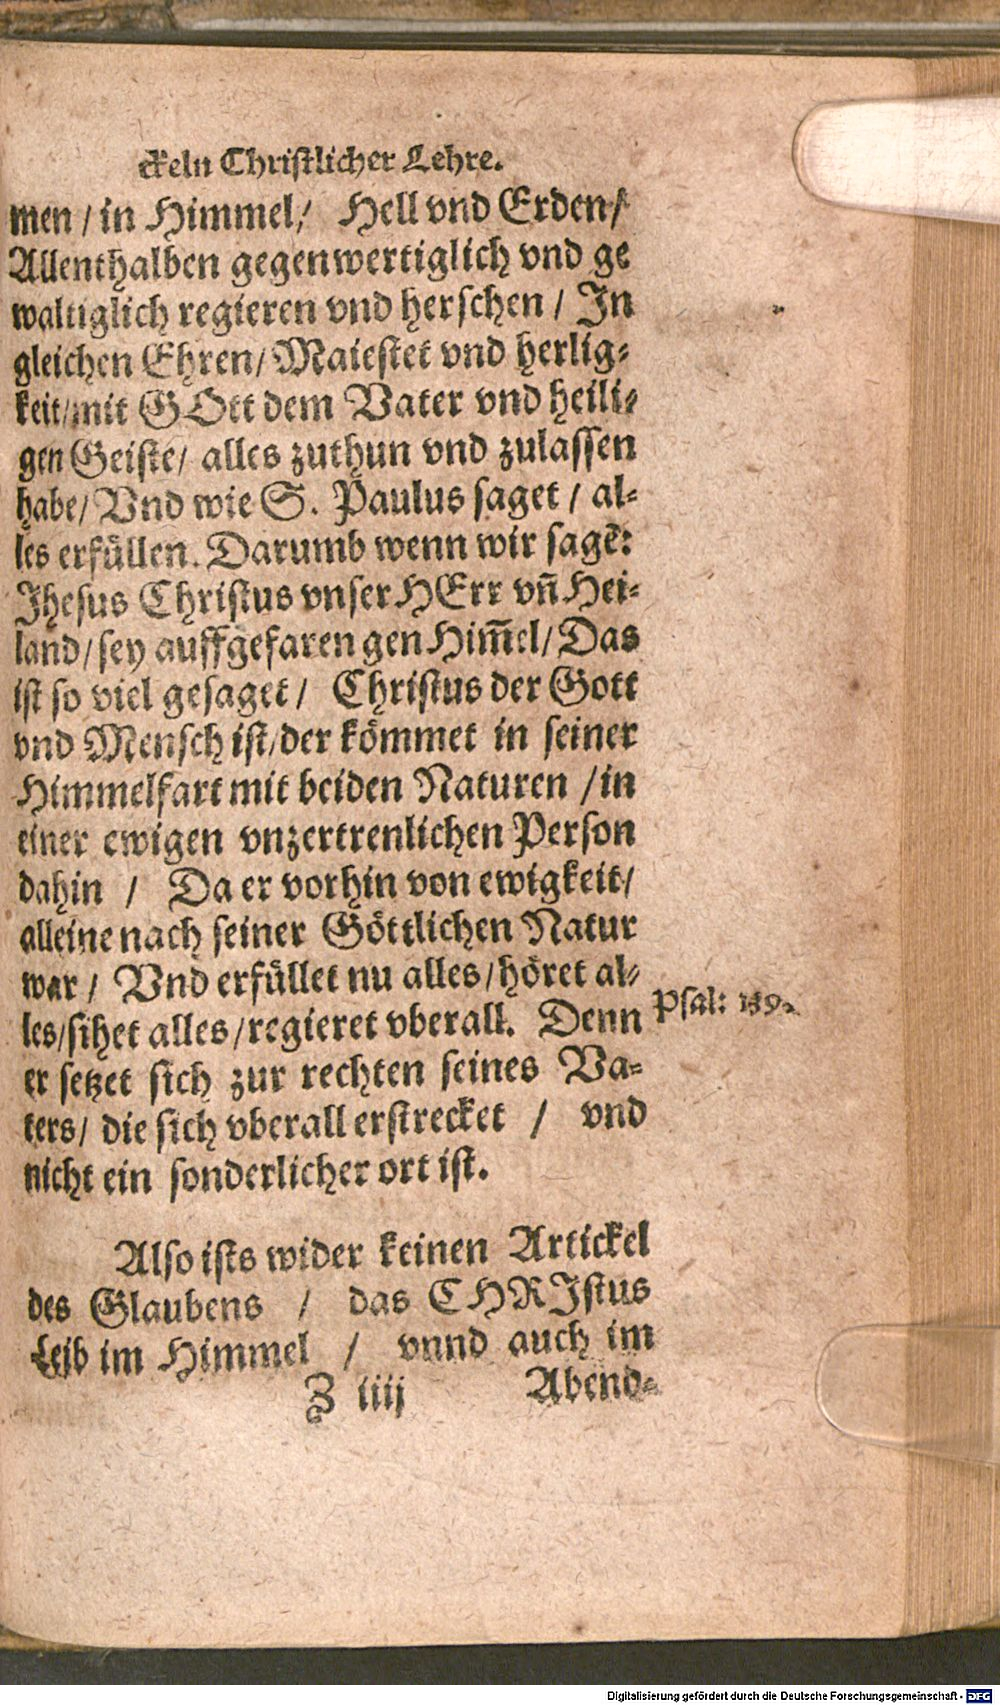 ckeln Christlicher Lehre.
men / in Himmel / Hell vnd Erden /
Allenthalben gegenwertiglich vnd ge
waltiglich regieren vnd herschen / In
gleichen Ehren / Maiestet vnd herlig⸗
keit / mit GOtt dem Vater vnd heili⸗
gen Geiste / alles zuthun vnd zulassen
habe / Vnd wie S. Paulus saget / al⸗
les erfüllen. Darumb wenn wir sagē:
Jhesus Christus vnser HErr vñ Hei⸗
land / sey auffgefaren gen Him̃el / Das
ist so viel gesaget / Christus der Gott
vnd Mensch ist / der kömmet in seiner
Himmelfart mit beiden Naturen / in
einer ewigen vnzertrenlichen Person
dahin / Da er vorhin von ewigkeit /
alleine nach seiner Göttlichen Natur
war / Vnd erfüllet nu alles / höret al⸗
les / sihet alles / regieret vberall. Denn
Psal: 139.
er setzet sich zur rechten seines Va⸗
ters / die sich vberall erstrecket / vnd
nicht ein sonderlicher ort ist.
Also ists wider keinen Artickel
des Glaubens / das CHRJstus
Leib im Himmel / vnnd auch im
Z iiij Abend⸗
Digitalisierung gefördert durch die Deutsche Forschungsgemeinschaft - DFG